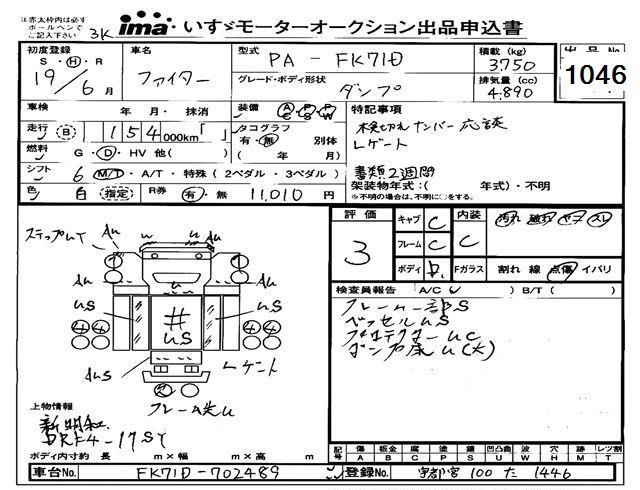 ※赤太枠内は必ず
ボールペンで
ご記入下さい
3K
ima いすゞモーターオークション出品申込書
初度登録 車名 型式 PA - FK71D 積載 (kg) 出品No.
S・H・R 3750 1046
19/6月 ファイター グレード・ボディ形状 ダンプ 排気量 (cc)
4.890
車検 年 月・抹消 装備 AC PS PW 特記事項
走行 B 154000km「 」 タコグラフ 検切れナンバー応談
有・無 別体 Lゲート
燃料 G・D・HV 他( ) ( 年 月)
シフト 6 M/T・A/T・特殊(2ペダル・3ペダル) 書類2週間
架装物年式:( 年式)・不明
色 白 指定 R券 有・無 11,010円 ※不明の場合は、不明に○をする。
評価 キャブ C 内装 汚れ 破れ コゲ スレ
3 フレーム C C
ボディ D Fガラス 割れ 線 点傷 イバリ
検査員報告 A/C( ) B/T( )
フレーム一部S
ベッセルuS
プロテクターuC
ステップuT Au u u Au
Au Au
uS uS
4 4 # 4 4
uS
AuS Lゲート
フレーム先u
上物情報
新明和
DRF4-17SY
ボディ内寸 約 長 m×幅 m×高 m
記号 傷 板金 腐 塗 錆 凹凸曲 波 穴 跡 レツ割
A B C P S U W H M T
車台No. FK71D-702489 登録No. 宇都宮 100 た 1446